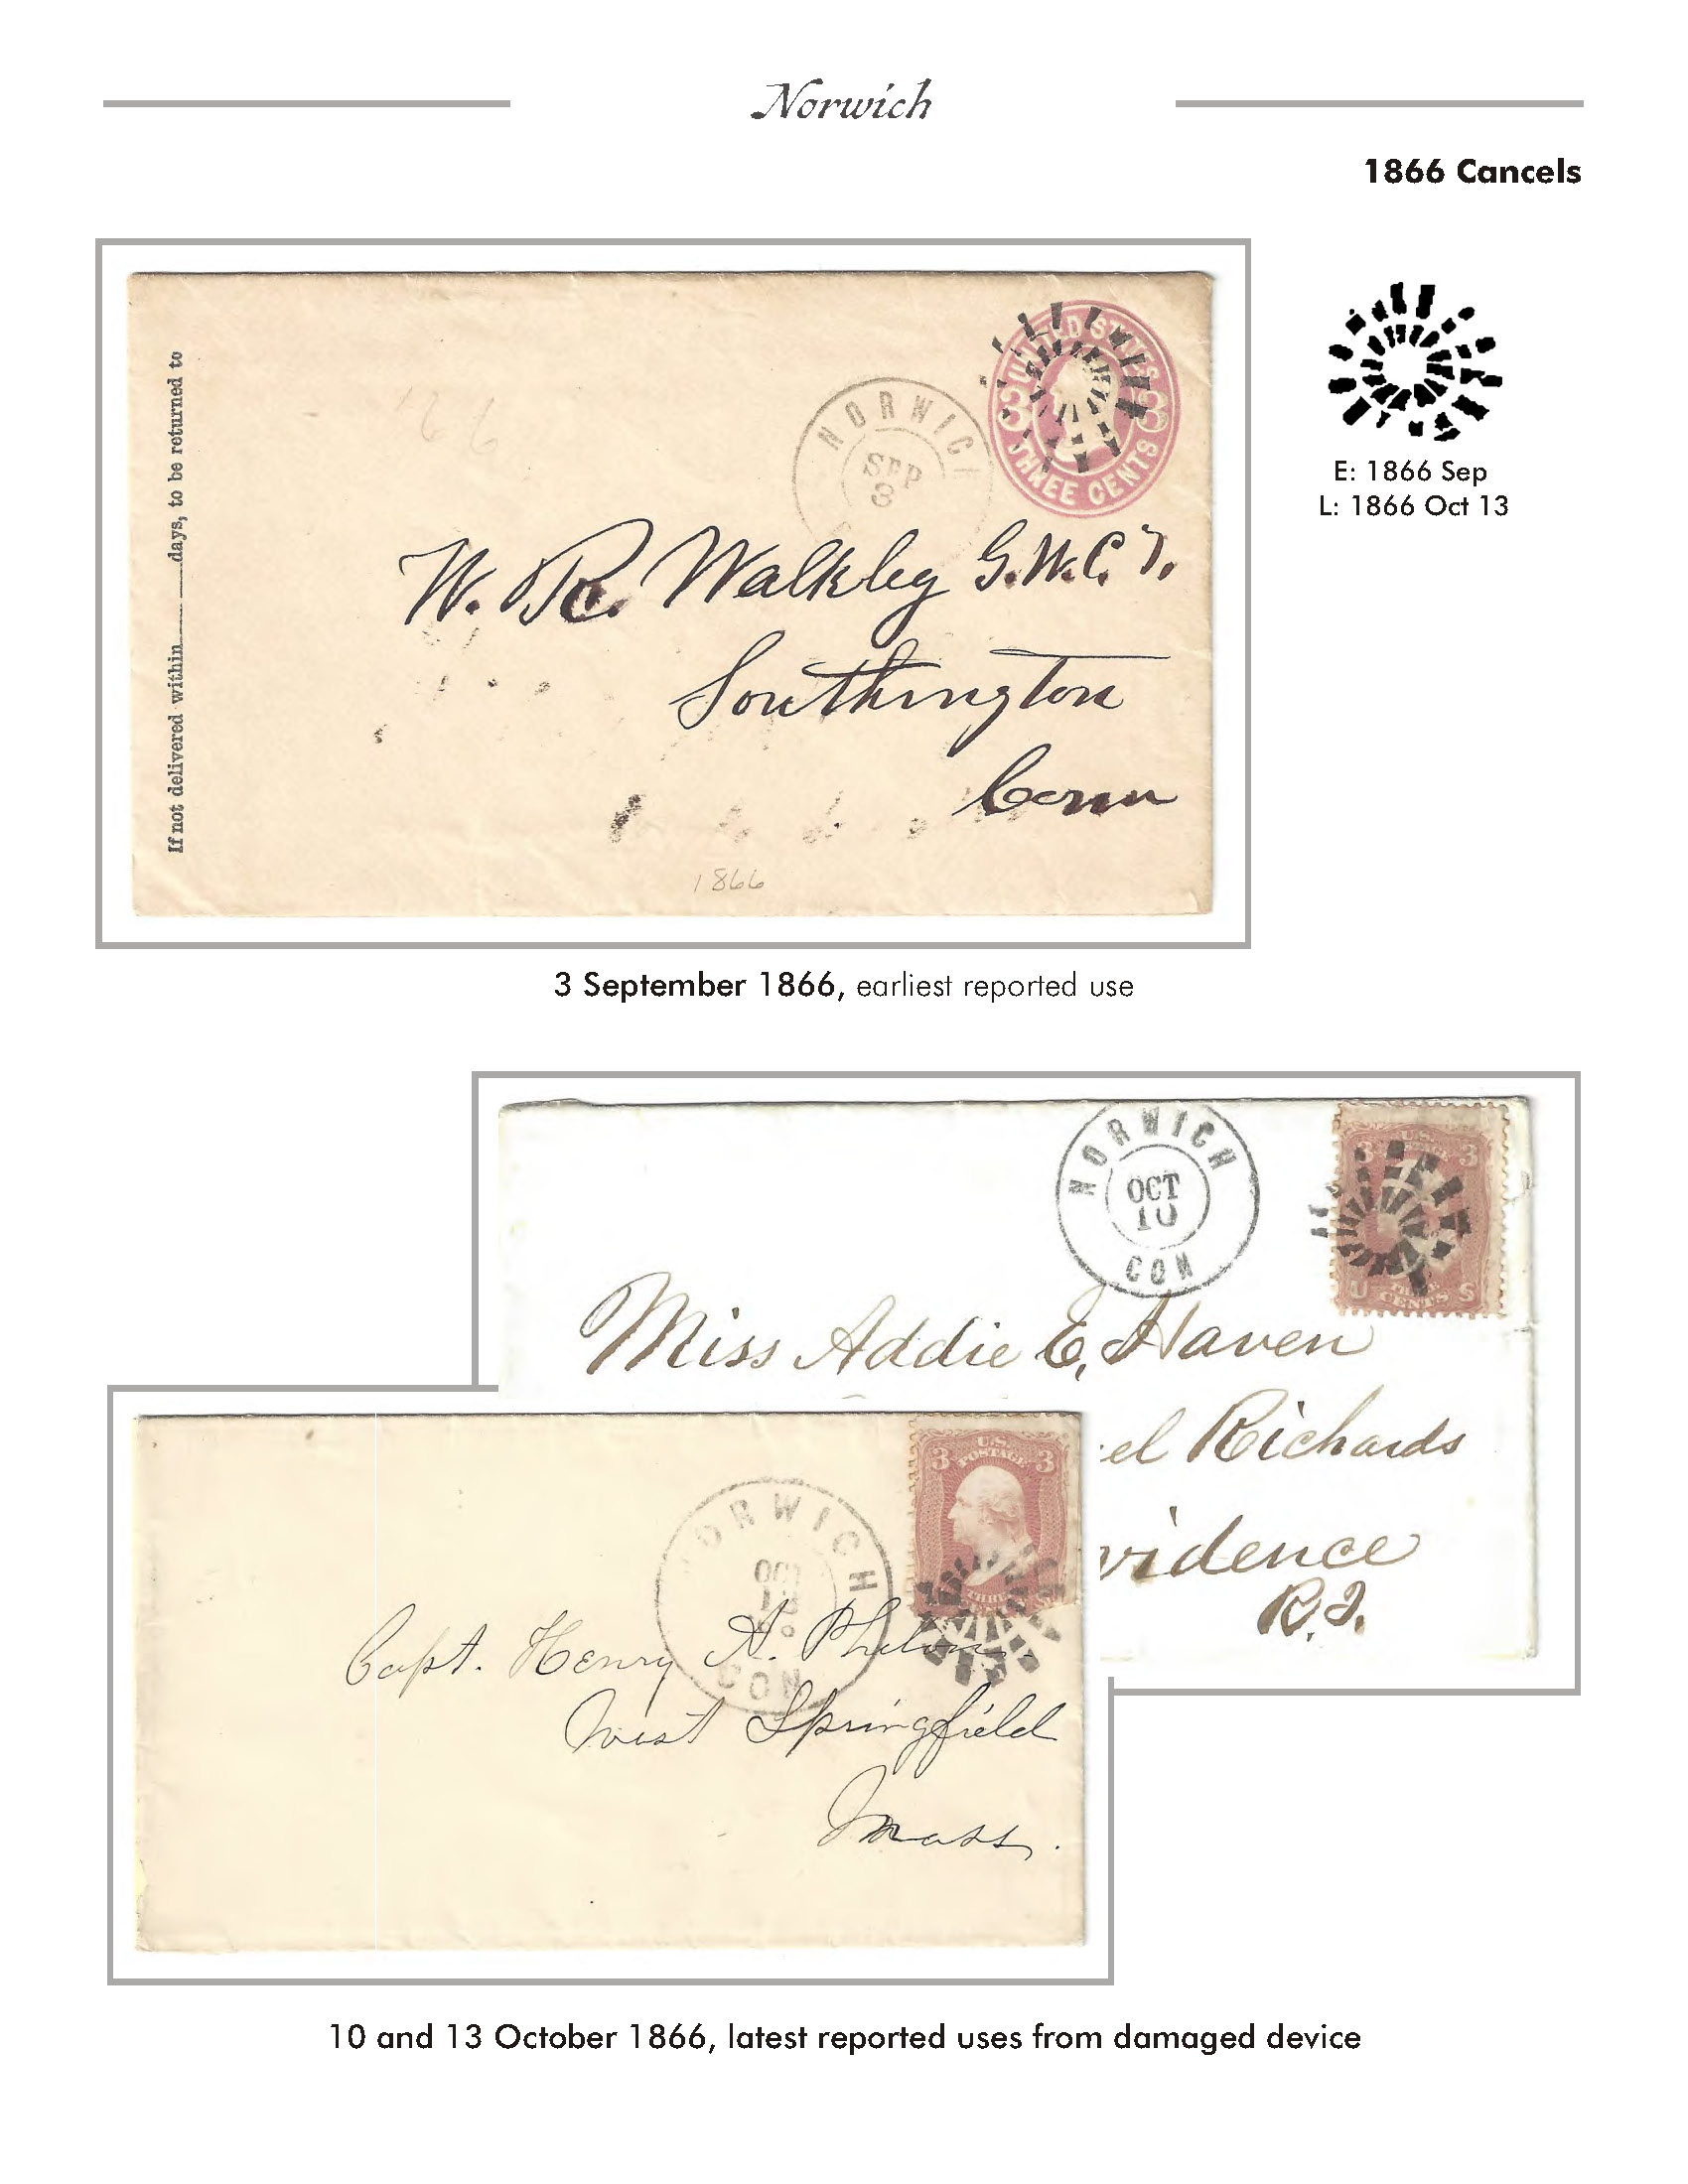 Norwich
1866 Cancels
If not delivered within ____ days, to be returned to
166
NORWICH
SEP
3
UNITED STATES
3 3
THREE CENTS
W. R. Walkley G.W.C.T.
Southington
Conn
1866
E: 1866 Sep
L: 1866 Oct 13
3 September 1866, earliest reported use
NORWICH
OCT
10
CON
3 U.S. POSTAGE 3
U CENTS S
Miss Addie E. Haven
el Richards
vidence
R.I.
NORWICH
OCT
13
CON
3 U.S. POSTAGE 3
Capt. Henry A.
West Springfield
Mass.
10 and 13 October 1866, latest reported uses from damaged device